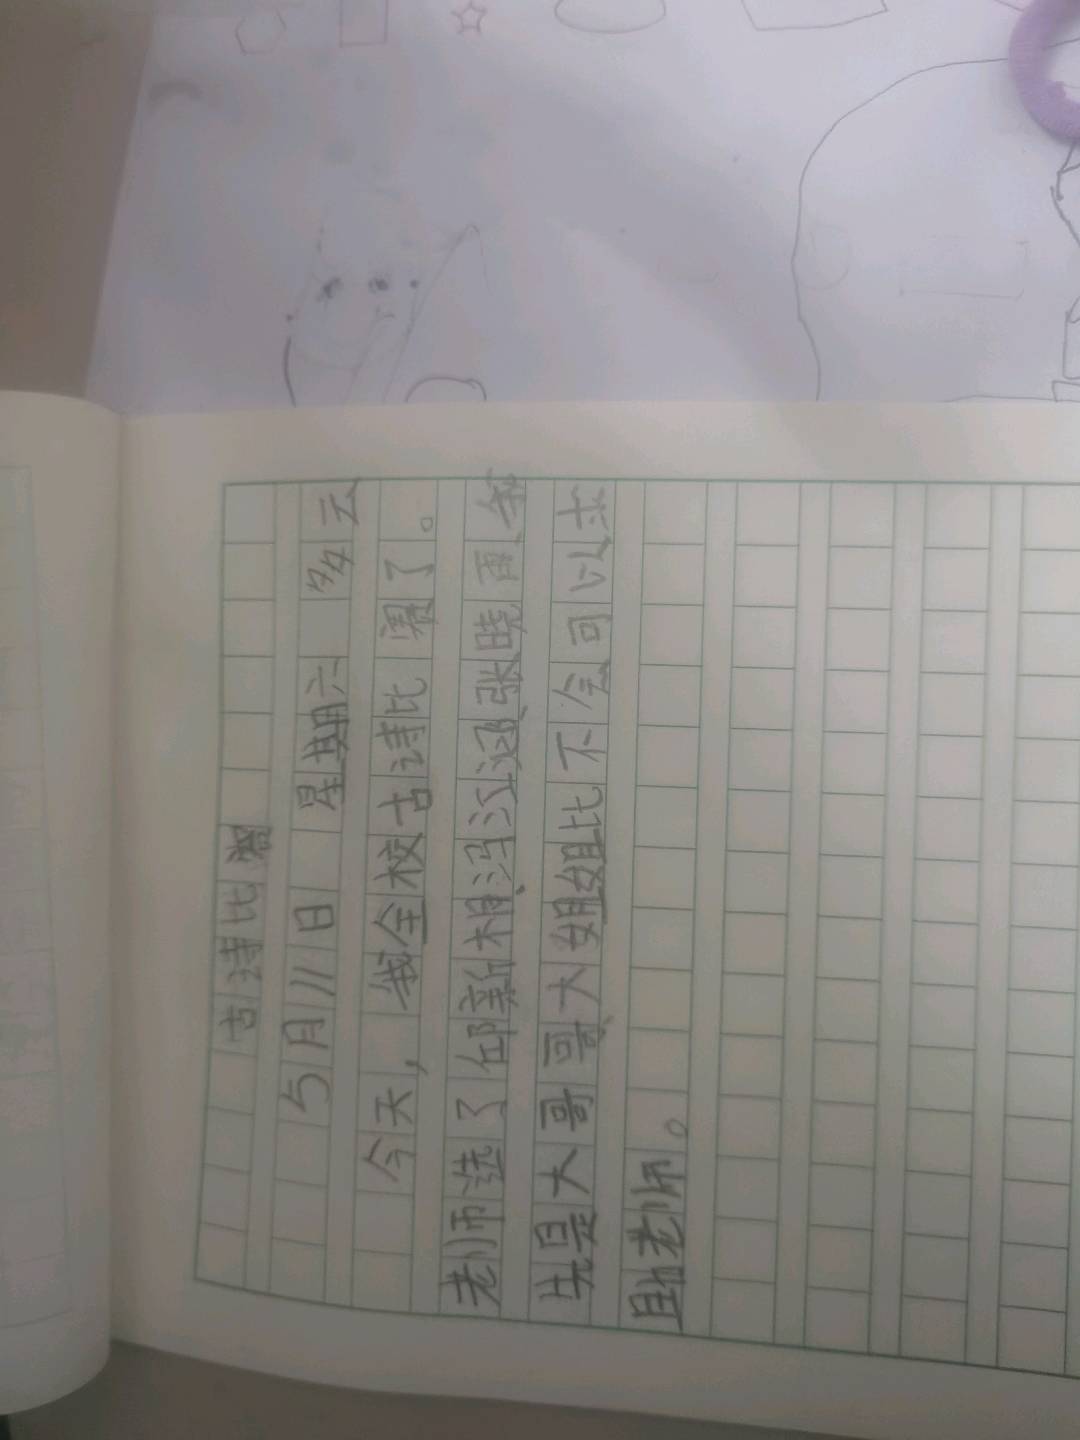 古诗比赛
5月11日 星期六 多云
今天，我全校古诗比赛了。
老师选了邱新相、江涵、张晓雨、
先是大哥哥、大姐姐比不会可以求
助老师。